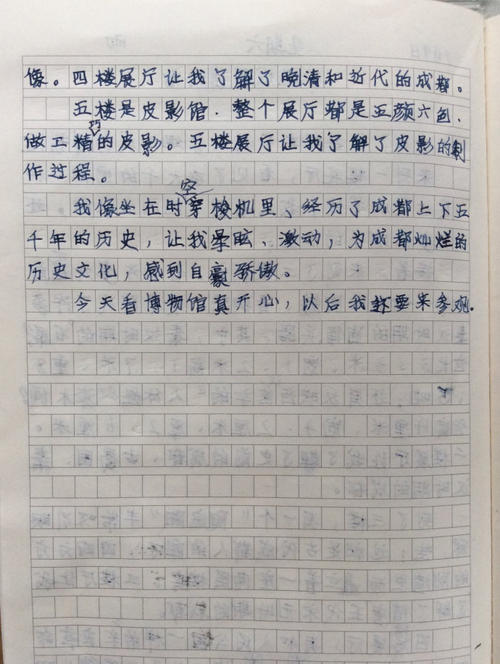 像。四楼展厅让我了解了晚清和近代的成都。
五楼是皮影馆．整个展厅都是五颜六色，
做工精巧的皮影。五楼展厅让我了解了皮影的制
作过程。
我像坐在时空穿梭机里、经历了成都上下五
千年的历史，让我晕眩、激动，为成都灿烂的
历史文化，感到自豪骄傲。
今天看博物馆真开心，以后我还要来参观．